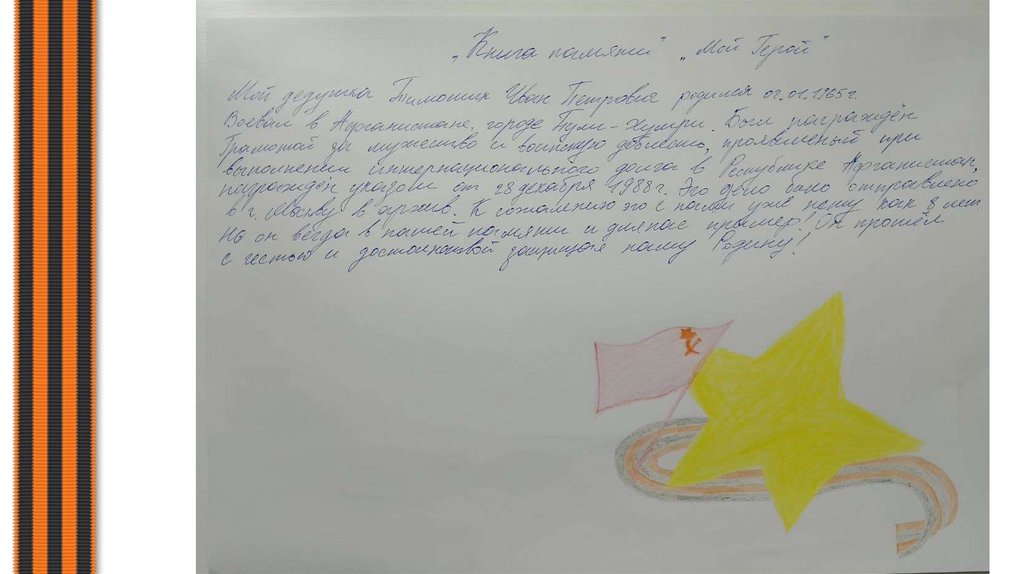 „Книга памяти" „Мой Герой"
Мой дедушка Тимошик Иван Петрович родился 02.01.1965г.
Воевал в Афганистане, городе Пули-Хумри. Был награждён
Грамотой за мужество и воинскую доблесть, проявленный при
выполнении интернационального долга в Республике Афганистан,
награждён указом от 28 декабря 1988г. Это дело было отправлено
в г. Москву в архив. К сожалению его с нами уже нету как 8 лет
Но он всегда в нашей памяти и для нас пример! Он прошёл
с честью и достоинством защищая нашу Родину!